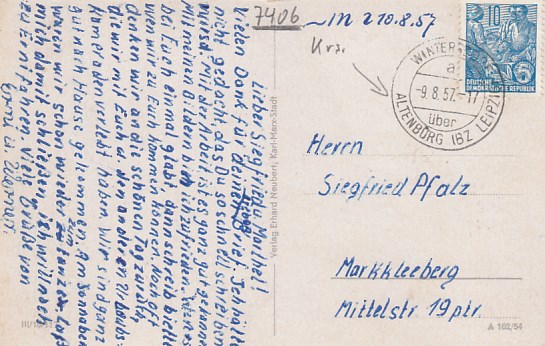 7406
In 2 10.8.57
Krs.
10
DEUTSCHE
DEMOKRATISCHE REPUBLIK
-9.8.57.-17
über
ALTENBURG (BZ LEIPZIG)
Herrn
Siegfried Pfalz
Markkleeberg
Mittelstr. 19 ptr.
Lieber Siegfried u. Waltheil
Vielen Dank für deinen Brief. Ich hätte
nicht gedacht das Du so schnell schreiben
würdest. Mit der Arbeit ist es ganz gut
Mit meinen Bildern bin ich zufrieden.
Bei Euch einmal glabt, dann schreib bitte
wenn wir zu Euch kommen können. Noch oft
denken wir an die schönen Tage zurück
die wir mit Euch u. den anderen Urlaubs-
Kameraden verlebt haben. Wir sind ganz
gut nach Hause gekommen. Am Sonnabend
waren wir schon wieder zum Tanz.
mich damit schließen, ich will noch
Viele Grüße von
Verlag Erhard Neubert, Karl-Marx-Stadt
A 102/54